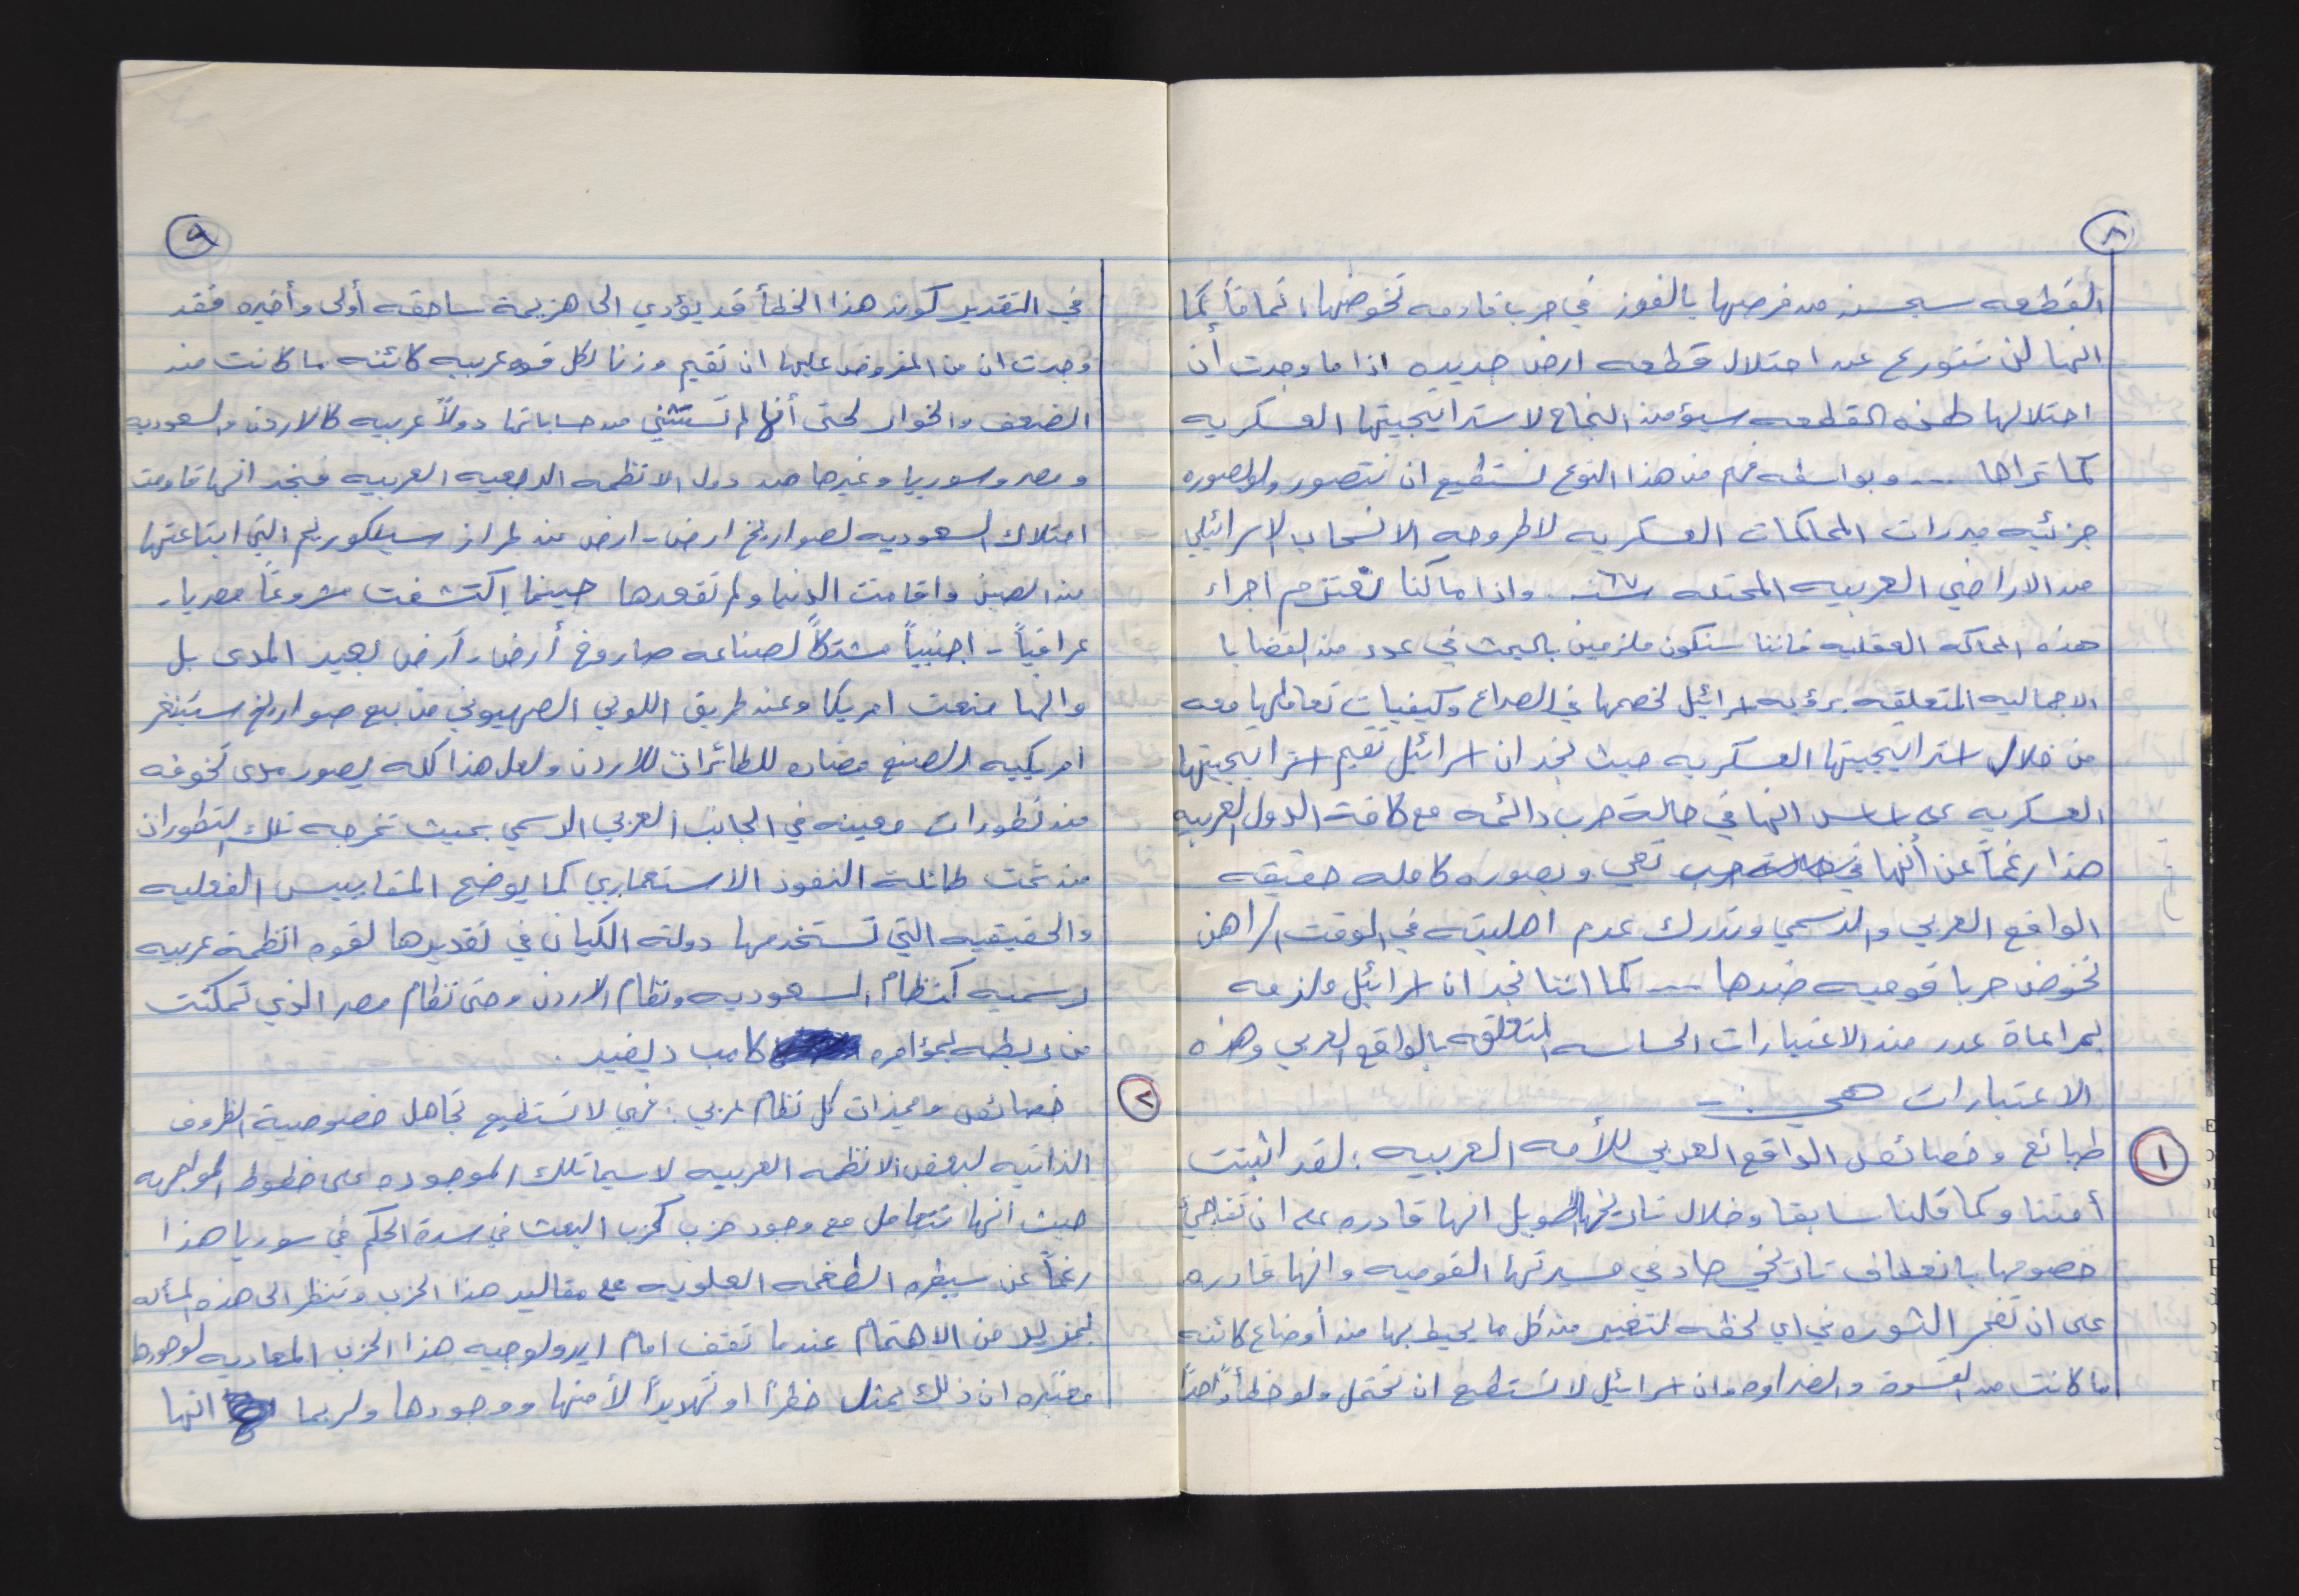 ٨
القطعه سيحسن من فرصها بالفوز في حرب قادمه تخوضها، تماماً كما
انها لن تتورع عن احتلال قطعه ارض جديده اذا ما وجدت أن
احتلالها لهذه القطعه سيؤمن النجاح لاستراتيجيتها العسكريه
كما تراها ... وبواسطه فهم من هذا النوع نستطيع ان نتصور ولو بصوره
جزئيه مبررات المحاكمات العسكريه لاطروحه الانسحاب الاسرائيلي
من الاراضي العربيه المحتله سنة ٦٧. واذا ما كنا نعتزم اجراء
هذه المحاكمه العقليه فاننا سنكون ملزمين بالبحث في عدد من القضايا
الاجماليه المتعلقه برؤيه اسرائيل لخصمها في الصراع وكيفيات تعاملها معه
من خلال استراتيجيتها العسكريه حيث نجد ان اسرائيل تقيم استراتيجيتها
العسكريه على اساس انها في حالة حرب دائمه مع كافة الدول العربيه
هذا رغماً عن أنها تعي وبصوره كامله حقيقه
الواقع العربي والرسمي وتدرك عدم اهليته في الوقت الراهن
لخوض حربا قوميه ضدها --- كما اننا نجد ان اسرائيل ملزمه
بمراعاة عدد من الاعتبارات الحساسه المتعلقه بالواقع العربي وهذه
الاعتبارات هي :-
١ طبائع وخصائص الواقع العربي للأمه العربيه : لقد اثبتت
أمتنا وكما قلنا سابقا وخلال تاريخها الطويل انها قادره على ان تفاجئ
خصومها بانعطاف تاريخي حاد في مسيرتها القوميه وانها قادره
على ان تفجر الثوره في اي لحظه لتغير من كل ما يحيط بها من أوضاع كائنه
ما كانت من القسوة والضراوه وان اسرائيل لا تستطيع ان تحتمل ولو خطأً واحداً
٩
في التقدير كون هذا الخطأ قد يؤدي الى هزيمة ساحقه أولى وأخيره فقد
وجدت ان من المفروض عليها ان تقيم وزنا لكل قوه عربيه كائنه ما كانت من
الضعف والخوار لحتى أنها لم تستثني من حساباتها دولاً عربيه كالاردن والسعوديه
ومصر وسوريا وغيرها من دول الانظمه الرجعيه العربيه فنجد انها قاومت
امتلاك السعوديه لصواريخ ارض-ارض من طراز سيلكوريم التي ابتاعتها
من الصين واقامت الدنيا ولم تقعدها حينما إكتشفت مشروعاً مصريا-
عراقياً - اجنبياً مشتركاً لصناعه صاروخ أرض-أرض بعيد المدى بل
وانها منعت امريكا وعن طريق اللوبي الصهيوني من بيع صواريخ ستينغر
امريكيه الصنع مضاده للطائرات للاردن ولعل هذا كله يصور مدى تخوفه
من تطورات معينه في الجانب العربي الرسمي بحيث تخرجه تلك التطورات
من تحت طائلة النفوذ الاستعماري كما يوضح المقاييس الفعليه
والحقيقيه التي تستخدمها دولة الكيان في تقديرها لقوه انظمة عربيه
رسميه كنظام السعوديه ونظام الاردن وحتى نظام مصر الذي تمكنت
من ربطه بمؤامره كامب ديفيد .
٢ خصائص ومميزات كل نظام عربي : فهي لا تستطيع تجاهل خصوصية الظروف
الذاتيه لبعض الانظمه العربيه لاسيما تلك الموجوده على خطوط المواجهه
حيث انها تتعامل مع وجود حزب كحزب البعث في سدة الحكم في سوريا هذا
رغماً عن سيطره الطغمه العلويه على مقاليد هذا الحزب وتنظر الى هذه المسأله
بمزيد من الاهتمام عندما تقف امام ايدولوجيه هذا الحزب المعاديه لوجودها
معتبره ان ذلك يمثل خطراً او تهديداً لأمنها ووجودها ولربما انها